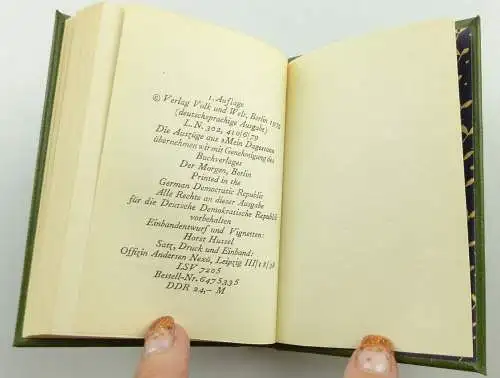 1. Auflage
© Verlag Volk und Welt, Berlin 1979
(deutschsprachige Ausgabe)
L. N. 302, 410/6/79
Die Auszüge aus »Mein Dagestan«
übernehmen wir mit Genehmigung des
Buchverlages
Der Morgen, Berlin
Printed in the
German Democratic Republic
Alle Rechte an dieser Ausgabe
für die Deutsche Demokratische Republik
vorbehalten
Einbandentwurf und Vignetten:
Horst Hussel
Satz, Druck und Einband:
Offizin Andersen Nexö, Leipzig III/18/38
LSV 7205
Bestell-Nr. 647 533 6
DDR 24,– M